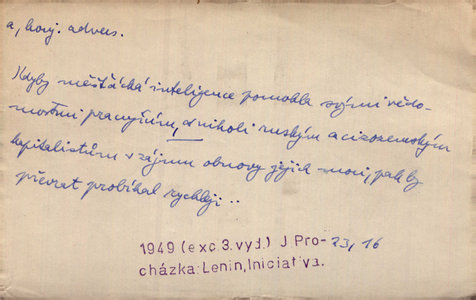 a, konj. advers.
Kdyby měšťácká inteligence pomohla svými vědo-
mostmi pracujícím, a nikoli ruským a cizozemským
kapitalistům v zájmu obnovy jejich moci, pak by
převrat probíhal rychleji..
1949 (exc 3.vyd.) J Pro- 23, 16
cházka: Lenin, Iniciativa.